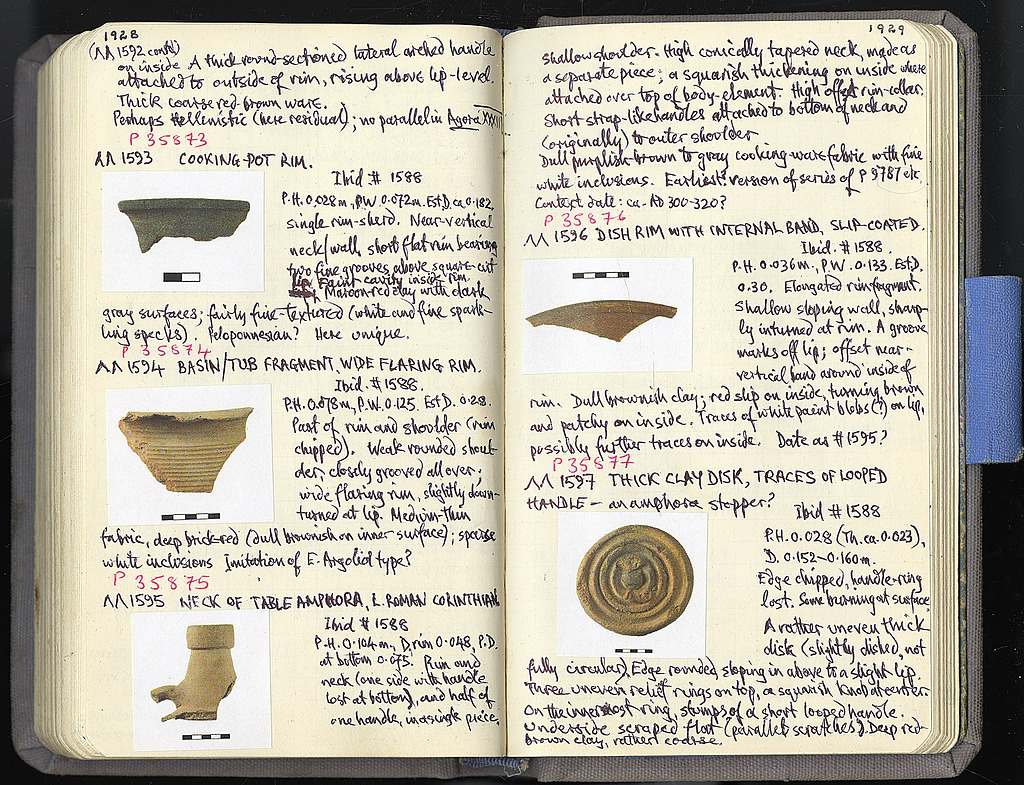 1928
(ΛΛ 1592 contd)
on inside. A thick round-sectioned lateral arched handle
attached to outside of rim, rising above lip-level.
Thick coarse red-brown ware.
Perhaps Hellenistic (here residual); no parallel in Agora XXXIII
P 35873
ΛΛ 1593 COOKING-POT RIM.
Ibid # 1588
P.H. 0.028m, P.W. 0.072m. Est D. ca 0.182.
single rim-sherd. Near-vertical
neck/wall, short flat rim bearing
two fine grooves above square-cut
lip. Faint cavity inside rim.
Maroon-red clay with dark
gray surfaces; fairly fine-textured (white and fine spark-
ling specks). Peloponnesian? Here unique.
P 35874
ΛΛ 1594 BASIN/TUB FRAGMENT, WIDE FLARING RIM.
Ibid. # 1588.
P.H. 0.078m, P.W. 0.125. Est D. 0.28.
Part of rim and shoulder (rim
chipped). Weak rounded shoul-
der, closely grooved all over;
wide flaring rim, slightly down-
turned at lip. Medium-thin
fabric, deep brick-red (dull brownish on inner surface); sparse
white inclusions Imitation of E. Argolid type?
P 35875
ΛΛ 1595 NECK OF TABLE AMPHORA, L. ROMAN CORINTHIAN
Ibid # 1588
P.H. 0.104m, D. rim 0.048, P.D.
at bottom 0.075. Rim and
neck (one side with handle
lost at bottom), and half of
one handle, in a single piece.
1929
shallow shoulder. High conically tapered neck, made as
a separate piece; a squarish thickening on inside where
attached over top of body-element. High offset rim-collar.
Short strap-like handles attached to bottom of neck and
(originally) to outer shoulder
Dull purplish-brown to gray cooking-ware fabric with fine
white inclusions. Earliest? version of series of P 9787 etc.
Context date: ca. AD 300-320?
P 35876
ΛΛ 1596 DISH RIM WITH INTERNAL BAND, SLIP-COATED.
Ibid. # 1588.
P.H. 0.036m, P.W. 0.133. Est D.
0.30. Elongated rim fragment.
Shallow sloping wall, sharp-
ly inturned at rim. A groove
marks off lip; offset near-
vertical band around inside of
rim. Dull brownish clay; red slip on inside, turning brown
and patchy on inside. Traces of white paint blobs (?) on lip,
possibly further traces on inside. Date as # 1595?
P 35877
ΛΛ 1597 THICK CLAY DISK, TRACES OF LOOPED
HANDLE - an amphora stopper?
Ibid # 1588
P.H. 0.028 (Th. ca. 0.023),
D. 0.152-0.160m.
Edge chipped, handle-ring
lost. Some burning at surface
A rather uneven thick
disk (slightly dished, not
fully circular). Edge rounded, sloping in above to a slight lip.
Three uneven relief rings on top, a squarish knob at center.
On the innermost ring, stumps of a short looped handle.
Underside scraped flat (parallel scratches). Deep red-
brown clay, rather coarse.